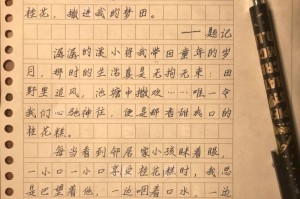 桂花，撒进我的梦田。
——题记
潺潺的溪水将我带回童年的岁
月，那时的生活真是无拘无束：田
野里追风，池塘中撒欢……唯一令
我们心驰神往，便是那香甜爽口的
桂花糕。
每当看到邻居家小孩眯着眼，
一小口一小口享受桂花糕时，我总
是巴望着他，一边咽着口水，一边